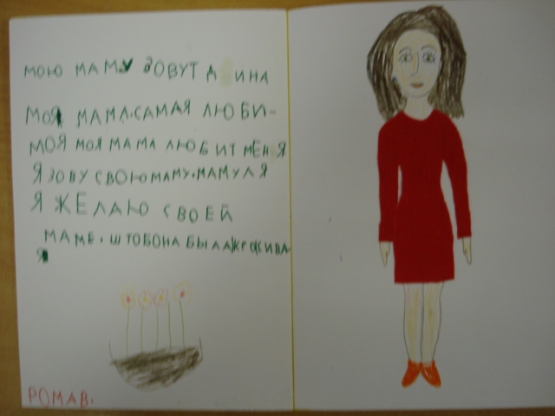 МОЮ МАМУ ЗОВУТ А ИНА
МОЯ МАМА.САМАЯ ЛЮБИ-
МОЯ МОЯ МАМА ЛЮБИТ МЕНЯ
Я ЗОВУ СВОЮ МАМУ.МАМУЛЯ
Я ЖЕЛАЮ СВОЕЙ
МАМЕ. ШТОБ ОНА БЫЛА КРАСИВА
Я
РОМА В.